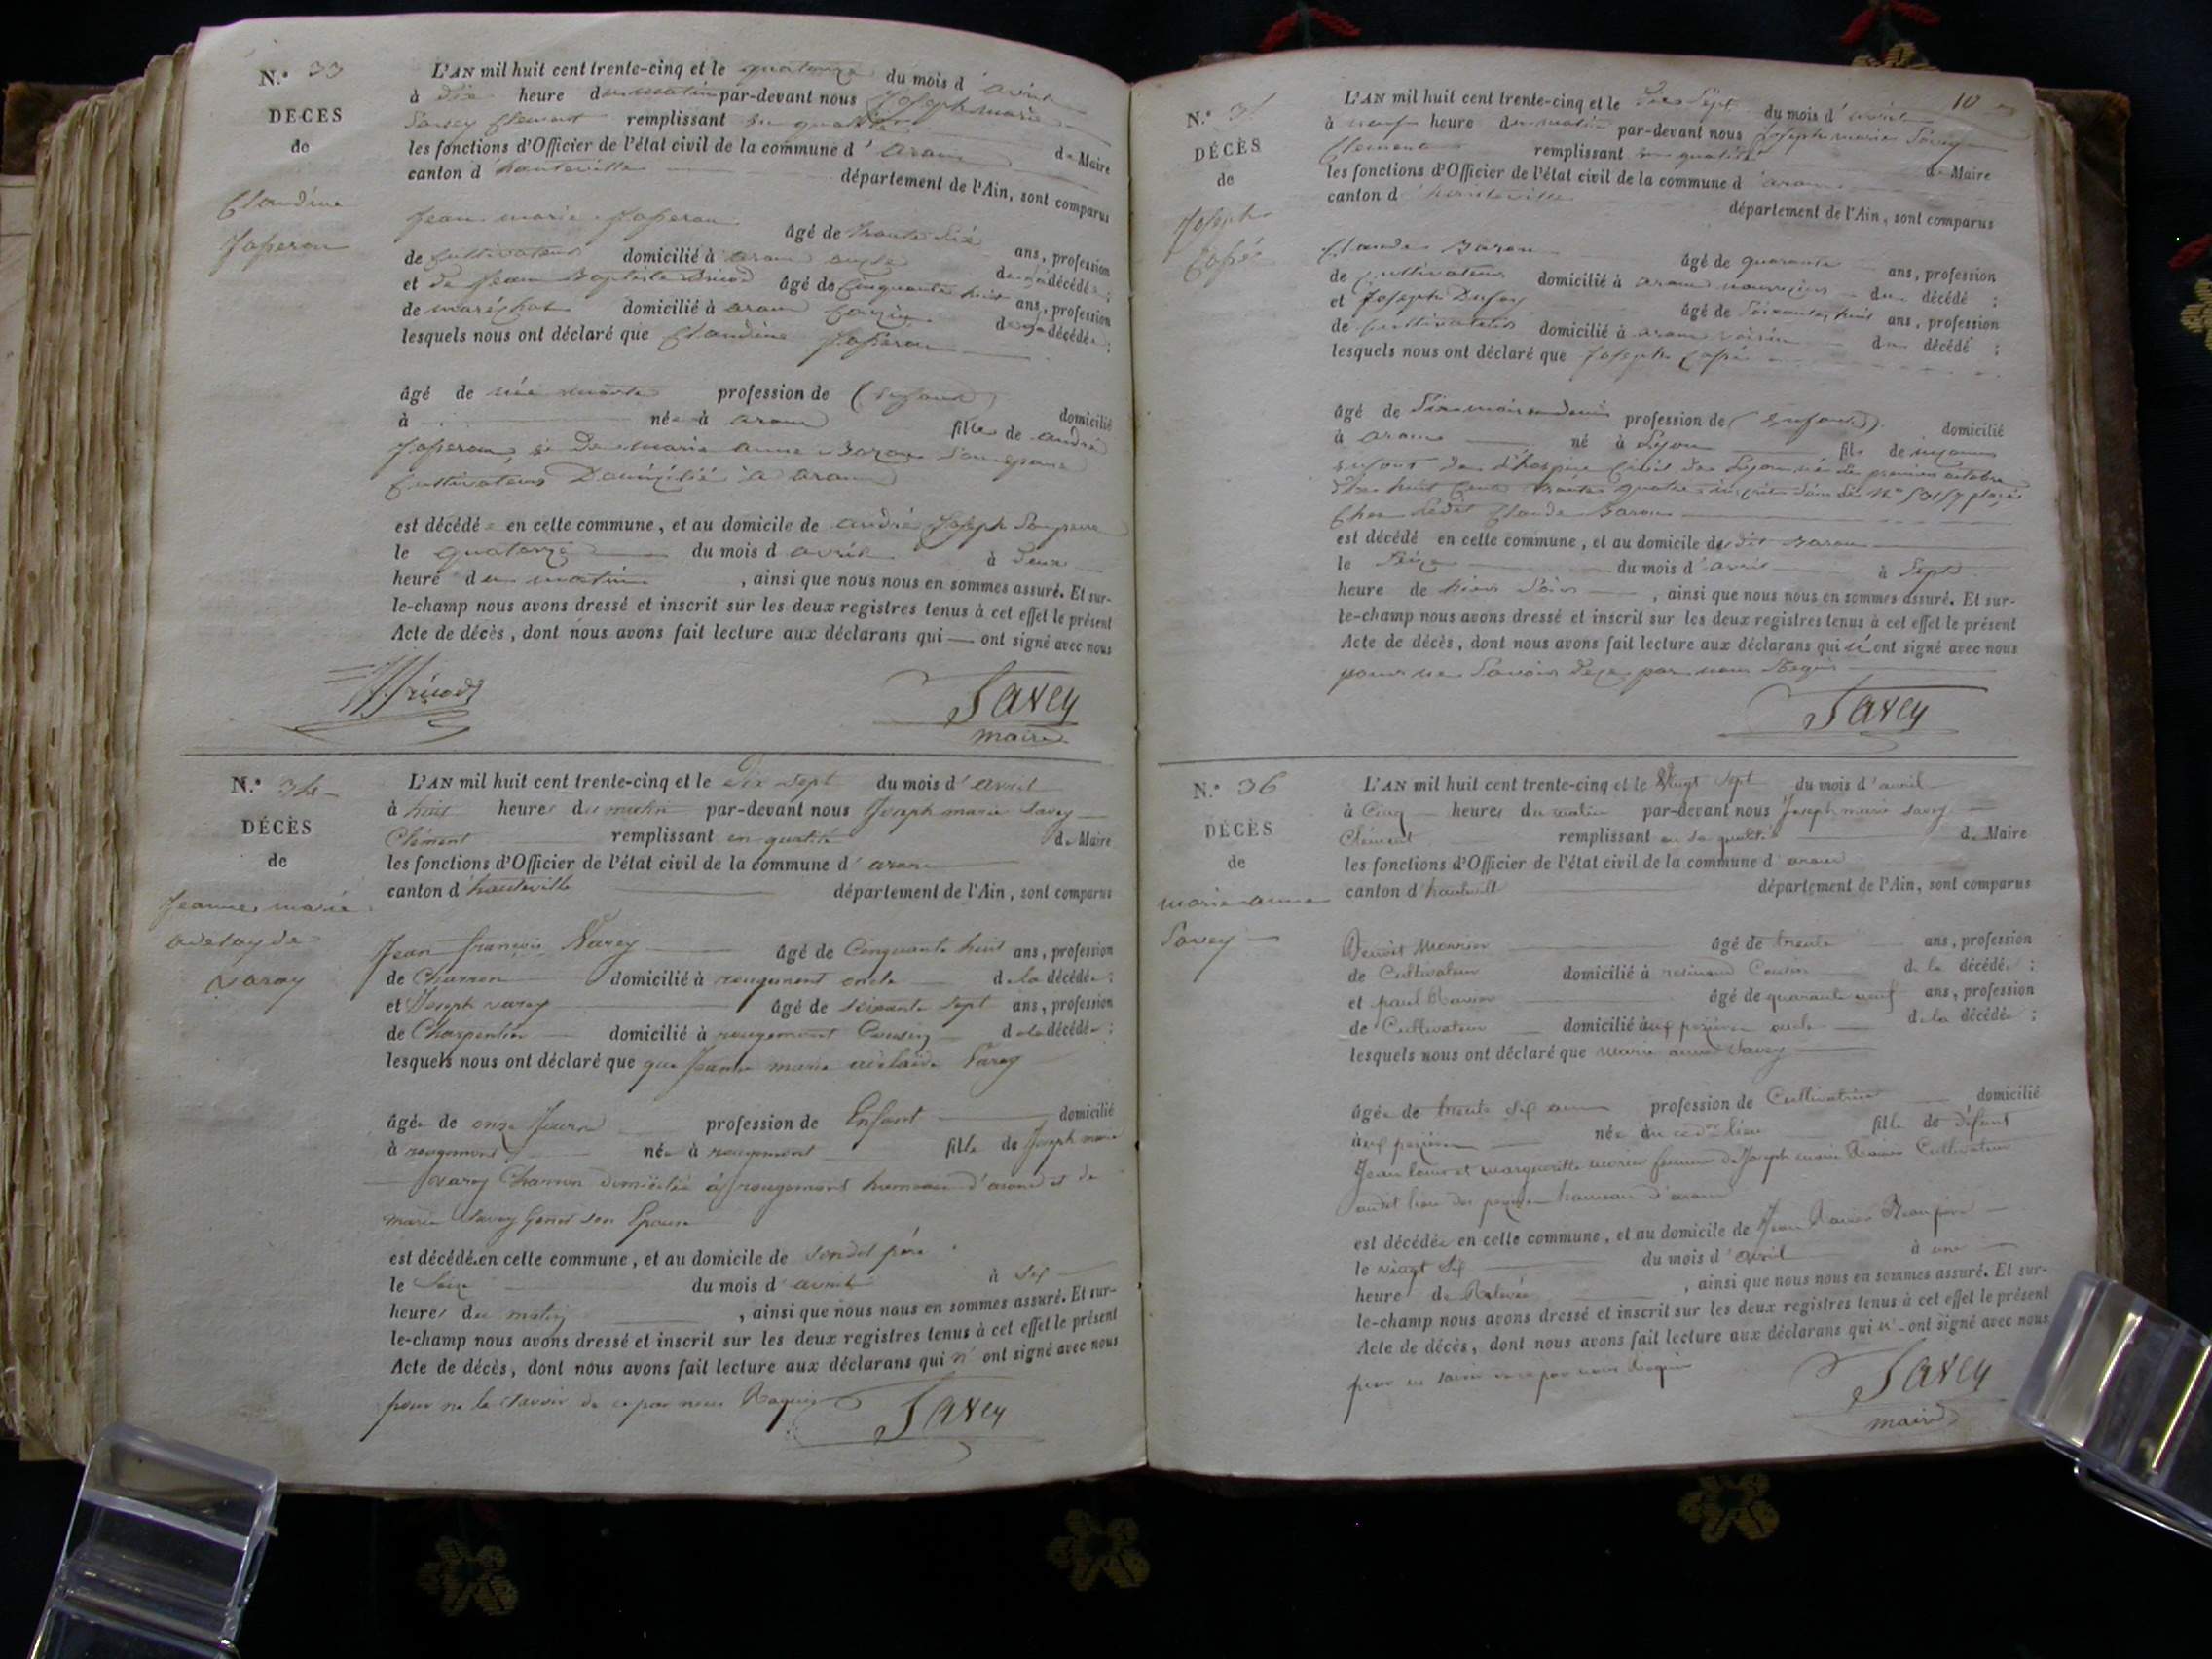 N.° 33
DÉCÈS
de
Claudine
Joseran
L'AN mil huit cent trente-cinq et le quatorze du mois d'avril
à dix heure du matin par-devant nous Joseph marie
Savey Clément remplissant en qualité de Maire
les fonctions d'Officier de l'état civil de la commune d'aranc
canton d'hauteville département de l'Ain, sont comparus
Jean marie âgé de trente six ans, profession
de Cultivateur domicilié à aranc oncle de la décédée;
et de Jean Baptiste Bricod âgé de Cinquante huit ans, profession
de maréchal domicilié à aranc Cousin de la décédée;
lesquels nous ont déclaré que Claudine
âgé de née morte profession de (Enfant) domicilié
à née à aranc fille de andré
et De marie anne Baron Son épouse
Cultivateurs Domicilié à aranc
est décédée en cette commune, et au domicile de andré
le quatorze du mois d'avril à deux
heure du matin, ainsi que nous nous en sommes assuré. Et sur-
le-champ nous avons dressé et inscrit sur les deux registres tenus à cet effet le présent
Acte de décès, dont nous avons fait lecture aux déclarans qui — ont signé avec nous
Bricod
Savey
maire
N.° 34
DÉCÈS
de
Jeanne marie
adelayde
Varay
L'AN mil huit cent trente-cinq et le Dix sept du mois d'avril
à huit heures du matin par-devant nous Joseph marie Savey
Clément remplissant en qualité de Maire
les fonctions d'Officier de l'état civil de la commune d'aranc
canton d'hauteville département de l'Ain, sont comparus
Jean françois Varey âgé de Cinquante huit ans, profession
de Charron domicilié à rougemont oncle de la décédée;
et Joseph varey âgé de soixante sept ans, profession
de Charpentier domicilié à rougemont Cousin de la décédée;
lesquels nous ont déclaré que que Jeanne marie adélaïde Varey
âgée de onze Jours profession de Enfant domicilié
à rougemont née à rougemont fille de Joseph marie
Varey Charron domicilié à rougemont hameau d'aranc et de
marie Savey son Epouse
est décédé en cette commune, et au domicile de sondit père
le Seize du mois d'avril à six
heures du matin, ainsi que nous nous en sommes assuré. Et sur-
le-champ nous avons dressé et inscrit sur les deux registres tenus à cet effet le présent
Acte de décès, dont nous avons fait lecture aux déclarans qui n'ont signé avec nous
pour ne le savoir de ce par nous Requis
Savey
10
N.° 35
DÉCÈS
de
Joseph
L'AN mil huit cent trente-cinq et le Dix Sept du mois d'avril
à neuf heure du matin par-devant nous Joseph marie Savey
Clément remplissant en qualité de Maire
les fonctions d'Officier de l'état civil de la commune d'aranc
canton d'hauteville département de l'Ain, sont comparus
Claude Baron âgé de quarante ans, profession
de Cultivateur domicilié à aranc nourricier du décédé;
et Joseph Dufour âgé de Soixante huit ans, profession
de Cultivateur domicilié à aranc voisin du décédé;
lesquels nous ont déclaré que Joseph
âgé de Six mois et demi profession de (Enfant) domicilié
à aranc né à Lyon fils de inconnus
enfant de l'hospice Civil de Lyon né le premier octobre
Dix huit Cent trente quatre inscrit placé
Chez Ledit Claude Baron
est décédé en cette commune, et au domicile du dit Baron
le Seize du mois d'avril à Sept
heure de hier Soir, ainsi que nous nous en sommes assuré. Et sur-
le-champ nous avons dressé et inscrit sur les deux registres tenus à cet effet le présent
Acte de décès, dont nous avons fait lecture aux déclarans qui n'ont signé avec nous
pour ne Savoir de ce par nous Requis
Savey
N.° 36
DÉCÈS
de
marie anne
Savey
L'AN mil huit cent trente-cinq et le Vingt sept du mois d'avril
à Cinq heures du matin par-devant nous Joseph marie Savey
Clément remplissant en sa qualité de Maire
les fonctions d'Officier de l'état civil de la commune d'aranc
canton d'hauteville département de l'Ain, sont comparus
Benoit Monnier âgé de trente ans, profession
de Cultivateur domicilié à Cousin de la décédée;
et paul Ravier âgé de quarante neuf ans, profession
de Cultivateur domicilié aux oncle de la décédée;
lesquels nous ont déclaré que marie anne Savey
âgée de trente six ans profession de Cultivatrice domicilié
aux née au lieu fille de défunt
Jean louis et margueritte femme de Joseph marie Ravier Cultivateur
audit lieu des hameau d'aranc
est décédée en cette commune, et au domicile de Jean Ravier Beaupère
le vingt six du mois d'avril à une
heure de Relevée, ainsi que nous nous en sommes assuré. Et sur-
le-champ nous avons dressé et inscrit sur les deux registres tenus à cet effet le présent
Acte de décès, dont nous avons fait lecture aux déclarans qui n'ont signé avec nous
pour ne savoir de ce par nous Requis
Savey
maire